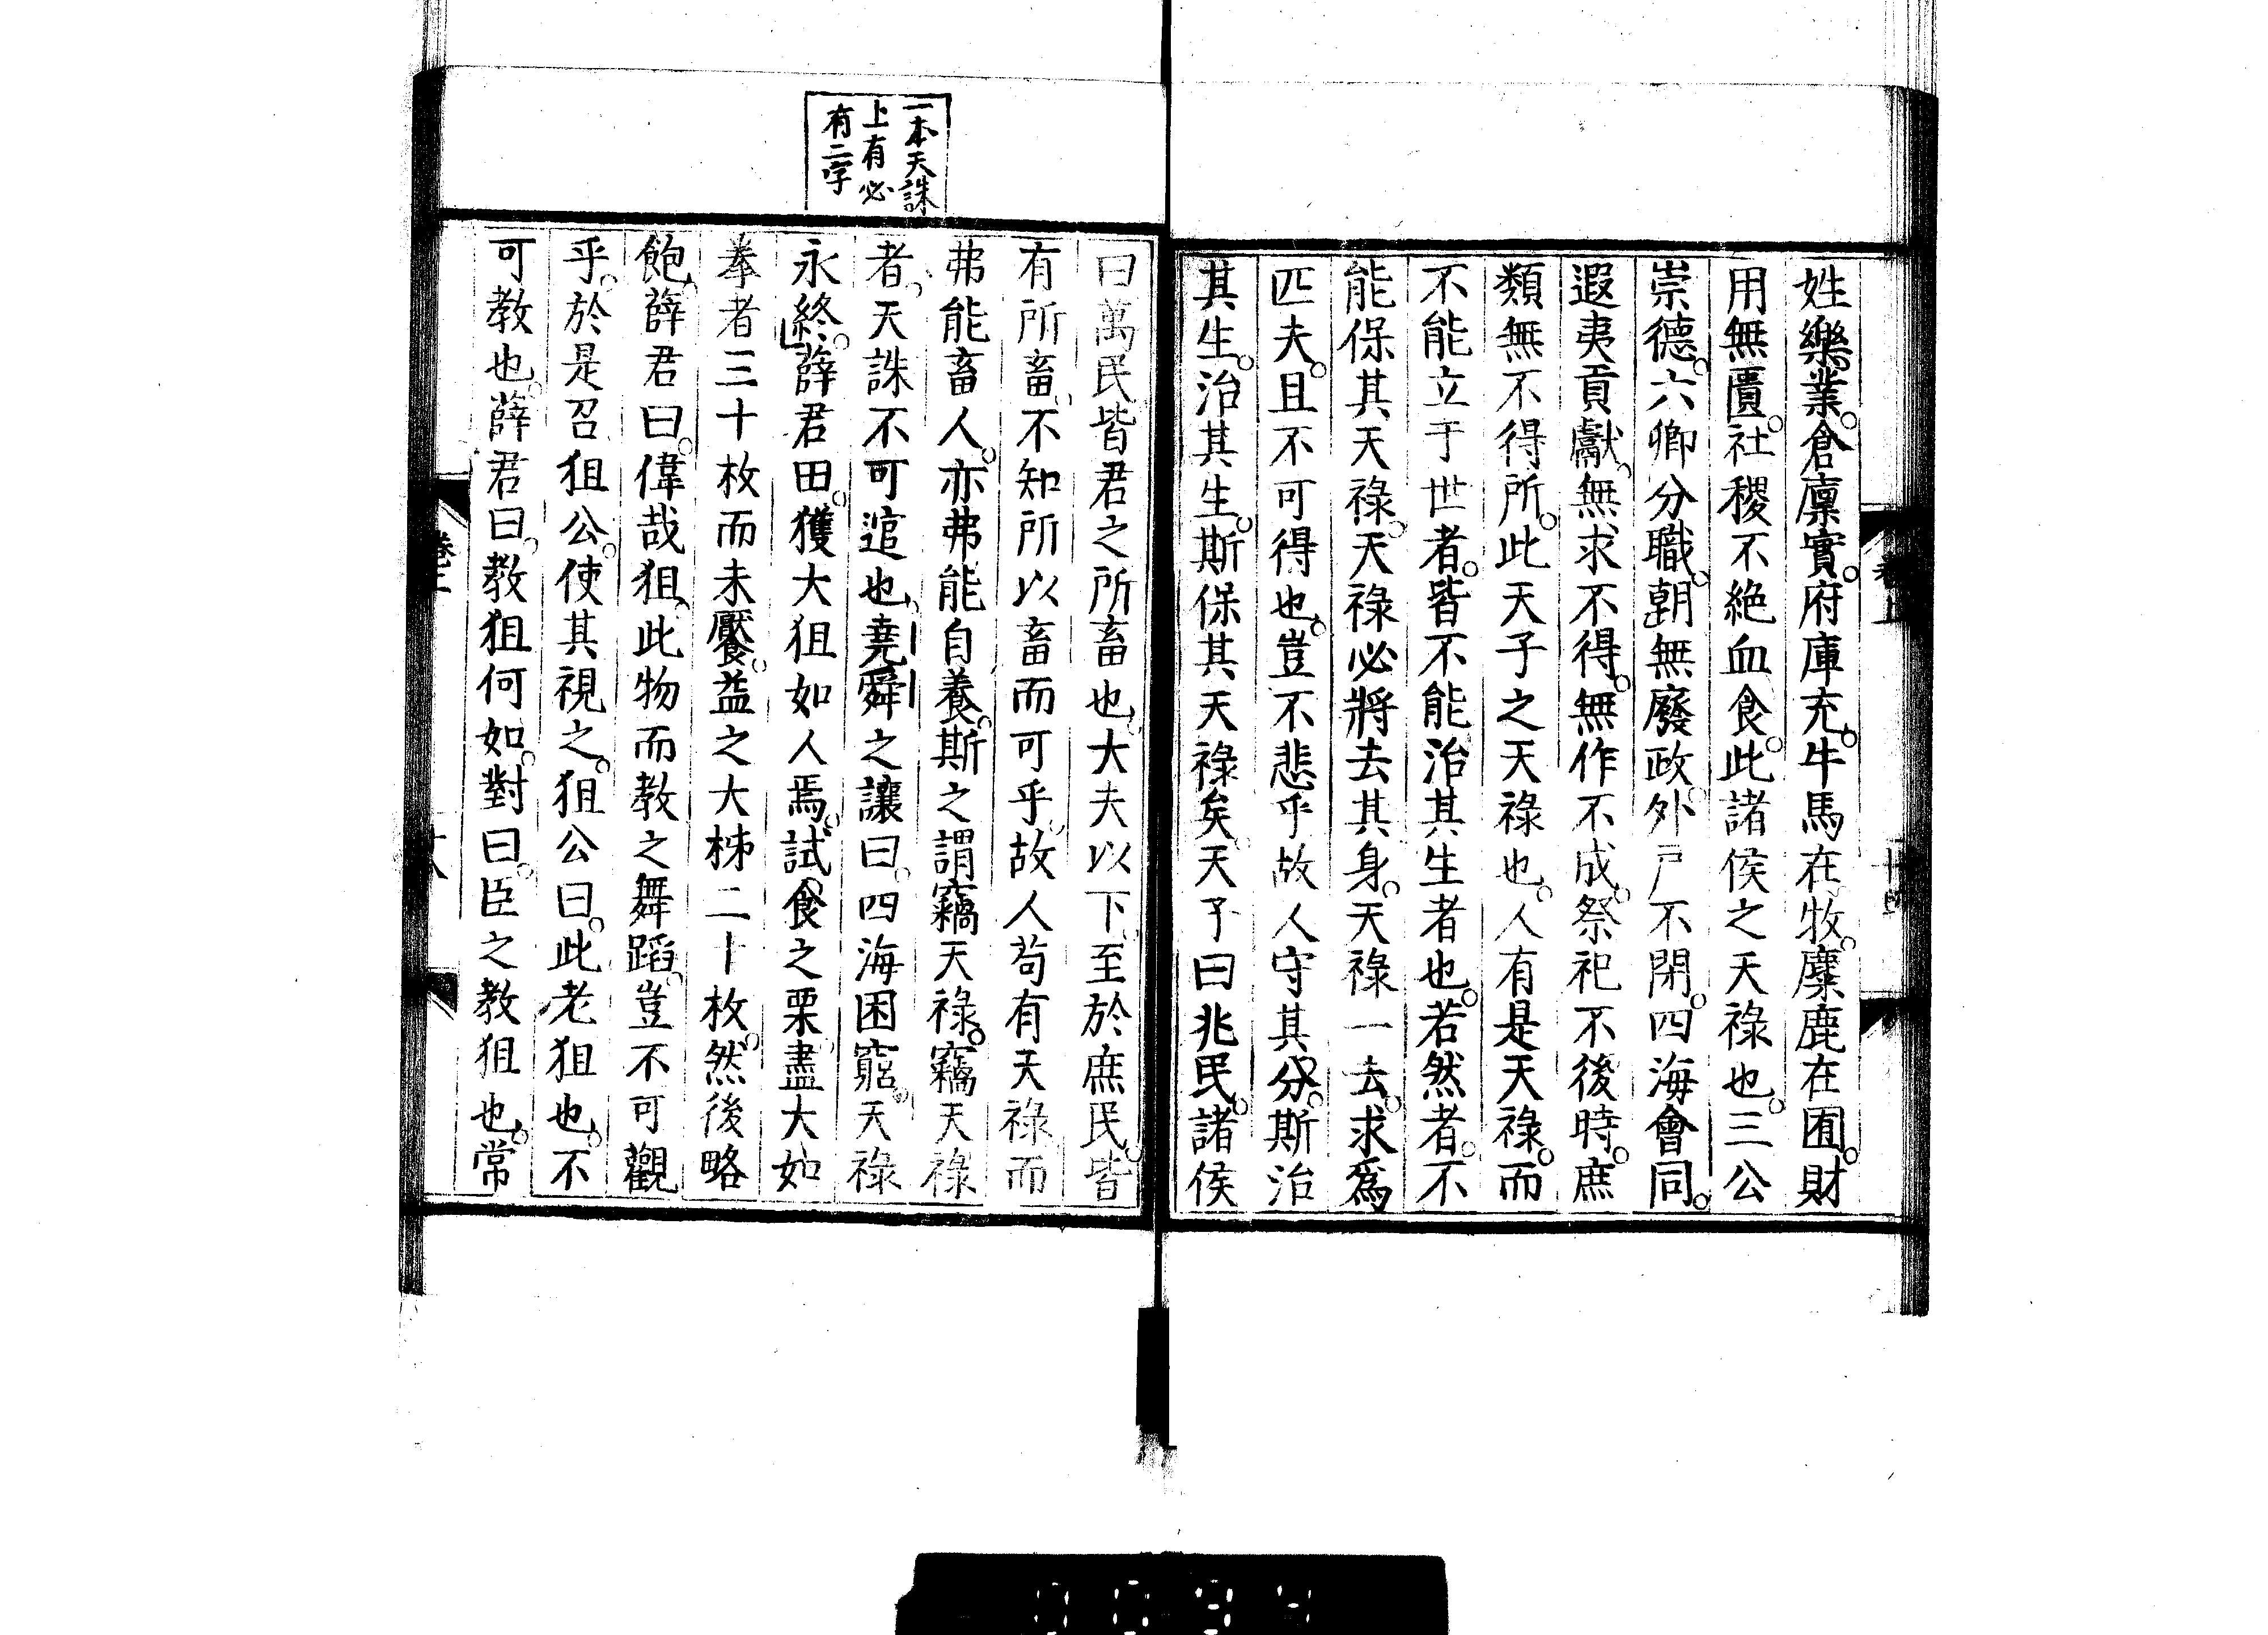 姓樂業。倉廩實。府庫充。牛馬在牧。麋鹿在囿。財
用無匱。社稷不絶血食。此諸侯之天祿也。三公
崇德。六卿分職。朝無廢政。外戸不閉。四海會同。
遐夷貢獻。無求不得。無作不成。祭祀不後時。庶
類無不得所。此天子之天祿也。人有是天祿。而
不能立于世者。皆不能治其生者也。若然者。不
能保其天祿。天祿必將去其身。天祿一去。求爲
匹夫。且不可得也。豈不悲乎故人守其分。斯治
其生。治其生。斯保其天祿矣。天子曰兆民。諸侯
曰萬民皆君之所畜也。大夫以下。至於庶民。皆
有所畜。不知所以畜而可乎。故人苟有天祿而
弗能畜人。亦弗能自養。斯之謂竊天祿。竊天祿
者。天誅不可逭也。堯舜之讓曰。四海困窮。天祿
永終。薛君田。獲大狙如人焉。試食之栗盡大如
拳者三十枚而未饜。益之大柹二十枚。然後略
飽。薛君曰。偉哉狙。此物而教之舞蹈。豈不可觀
乎。於是召狙公。使其視之。狙公曰。此老狙也。不
可教也。薛君曰。教狙何如。對曰。臣之教狙也。常
一本天誅
上有必
有二字